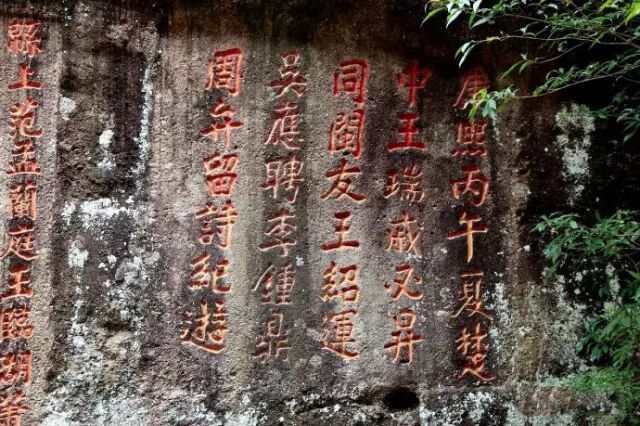 康熙丙午夏楚
中王瑞歲必昇
同閩友王紹運
吳應聘李鍾鼎
周弁留詩紀遊
縣上范孟蘭庭王臨湖